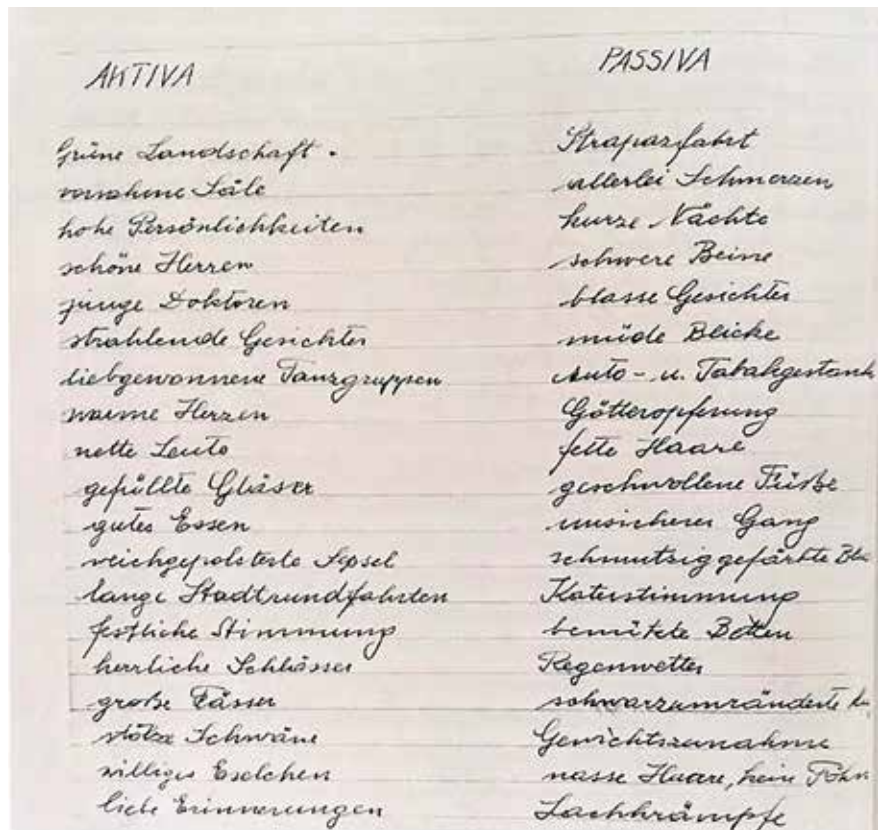 AKTIVA
Grüne Landschaft.
vornehme Säle
hohe Persönlichkeiten
schöne Herren
junge Doktoren
strahlende Gesichter
liebgewonnene Tanzgruppen
warme Herzen
nette Leute
gefüllte Gläser
gutes Essen
weichgepolsterte Sessel
lange Stadtrundfahrten
festliche Stimmung
herrliche Schlösser
große Fässer
stolze Schwäne
williges Eselchen
liebe Erinnerungen
PASSIVA
Strapazfahrt
allerlei Schmerzen
kurze Nächte
schwere Beine
blasse Gesichter
müde Blicke
Auto- u. Tabakgestank
Götteropferung
fette Haare
geschwollene Füße
unsicherer Gang
schmutzig gefärbte
Katerstimmung
Betten
Regenwetter
schwarzumränderte
Gewichtszunahme
nasse Haare, kein Föhn
Lachkrämpfe